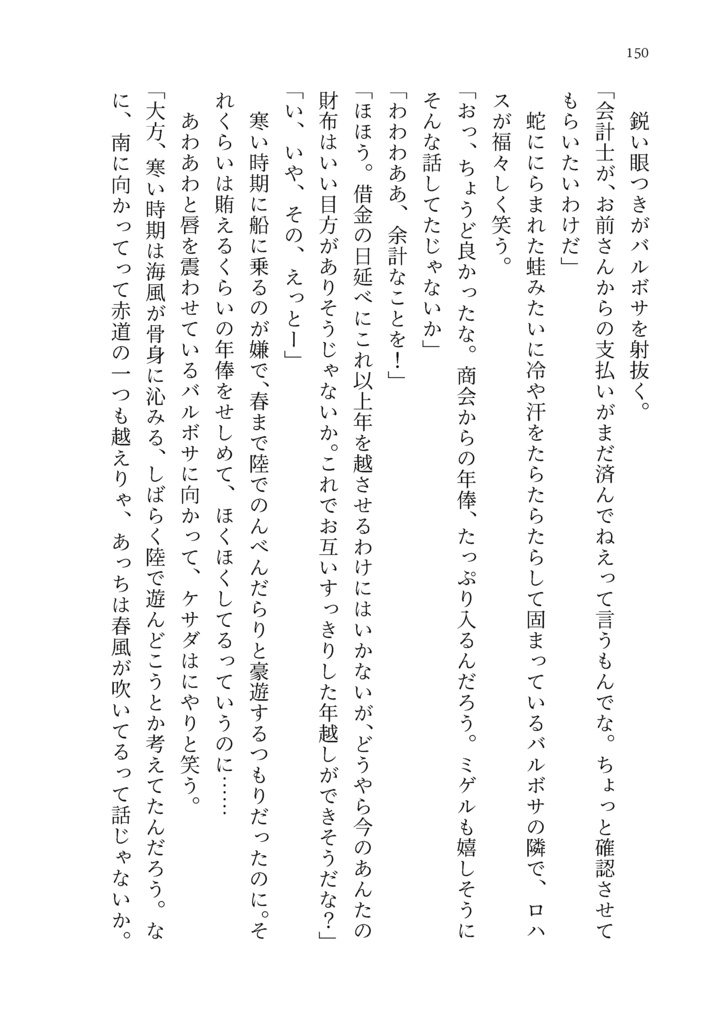 150
鋭い眼つきがバルボサを射抜く。
「会計士が、お前さんからの支払いがまだ済んでねえって言うもんでな。ちょっと確認させて
もらいたいわけだ」
蛇ににらまれた蛙みたいに冷や汗をたらたらたらして固まっているバルボサの隣で、ロハ
スが福々しく笑う。
「おっ、ちょうど良かったな。商会からの年俸、たっぷり入るんだろう。ミゲルも嬉しそうに
そんな話してたじゃないか」
「わわわああ、余計なことを！」
「ほほう。借金の日延べにこれ以上年を越させるわけにはいかないが、どうやら今のあんたの
財布はいい目方がありそうじゃないか。これでお互いすっきりした年越しができそうだな？」
「い、いや、その、えっとー」
寒い時期に船に乗るのが嫌で、春まで陸でのんべんだらりと豪遊するつもりだったのに。そ
れくらいは賄えるくらいの年俸をせしめて、ほくほくしてるっていうのに……
あわあわと唇を震わせているバルボサに向かって、ケサダはにやりと笑う。
「大方、寒い時期は海風が骨身に沁みる、しばらく陸で遊んどこうとか考えてたんだろう。な
に、南に向かってって赤道の一つも越えりゃ、あっちは春風が吹いてるって話じゃないか。